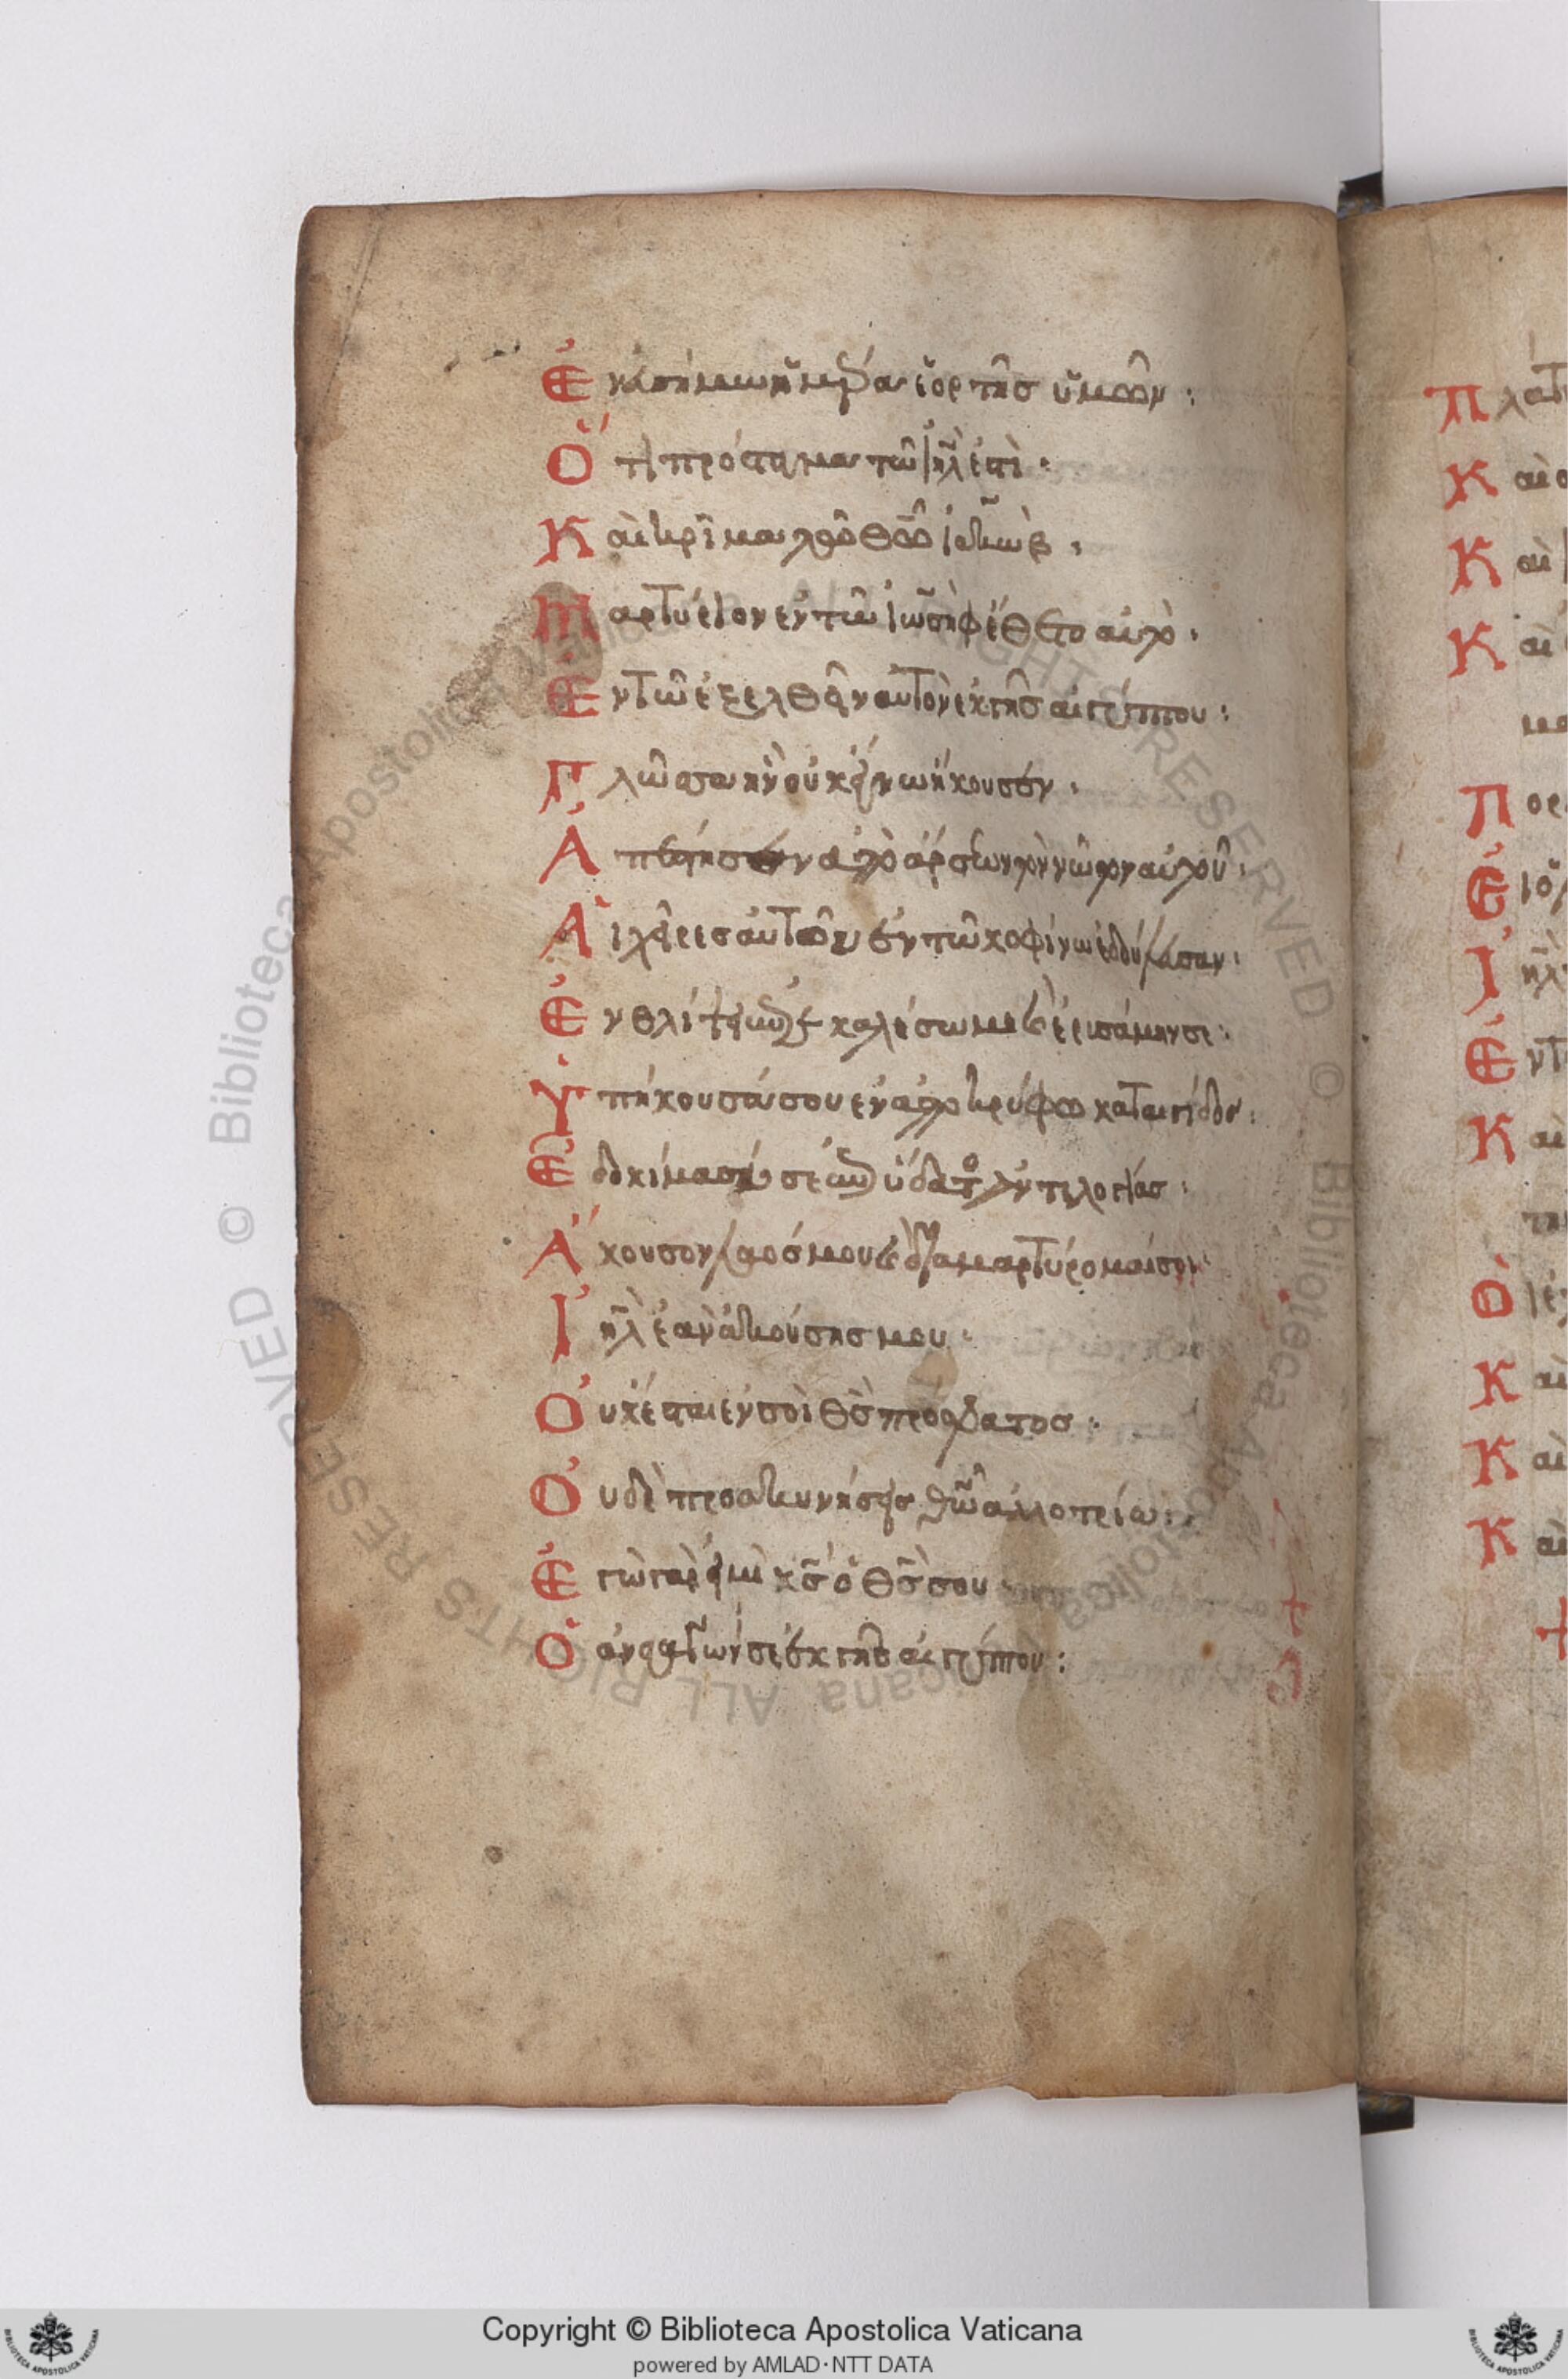 Ἐν εὐσήμω ἡμέρα ἑορτῆς ὑμῶν :
Ὅτι πρόσταγμα τῶ ἰηλ ἐστὶ ·
Καὶ κρίμα τῶ θῶ ἰακὼβ ·
Μαρτύριον ἐν τῶ ἰωσὴφ ἔθετο αὐτὸ ·
Ἐν τῶ ἐξελθεῖν αὐτὸν ἐκ γῆς αἰγύπτου :
Γλῶσσαν ἣν οὐκ ἔγνω ἤκουσεν ·
Ἀπέστησεν ἀπὸ ἄρσεων τὸν νῶτον αὐτοῦ ·
Αἱ χεῖρες αὐτοῦ ἐν τῶ κοφίνω ἐδούλευσαν :
Ἐν θλίψει ἐπεκαλέσω με καὶ ἐρρυσάμην σε :
Ὑπήκουσά σου ἐν ἀποκρύφω καταιγίδος :
Ἐδοκίμασά σε ἐπὶ ὕδατος ἀντιλογίας :
Ἄκουσον λαός μου καὶ διαμαρτύρομαί σοι :
Ἰηλ ἐὰν ἀκούσης μου :
Οὐκ ἔσται ἐν σοὶ θς πρόσφατος :
Οὐδὲ προσκυνήσεις θῶ ἀλλοτρίω :
Ἐγὼ γὰρ εἰμὶ κς ὁ θς σου
Ὁ ἀναγαγών σε ἐκ γῆς αἰγύπτου :
Copyright © Biblioteca Apostolica Vaticana
powered by AMLAD·NTT DATA